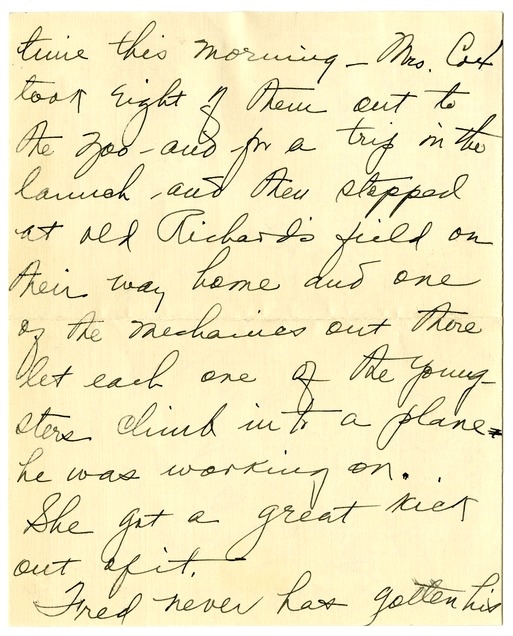 time this morning - Mrs. Cox
took eight of them out to
the zoo - and for a trip in the
launch and then stopped
at old Richards field on
their way home and one
of the mechanics out there
let each one of the young-
sters climb into a plane
he was working on.
She got a great kick
out of it. -
Fred never has gotten his